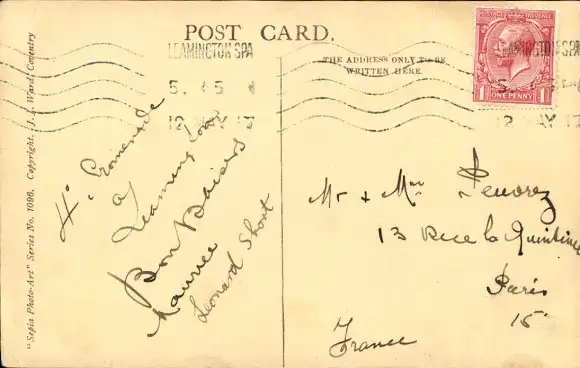 POST CARD.
THE ADDRESS ONLY TO BE
WRITTEN HERE.
LEAMINGTON SPA
5.
12 MAY 13
LEAMINGTON SPA
5.
12 MAY 13
ONE PENNY
"Sepia Photo-Art" Series No. 1096. Copyright, J. J. Ward, Coventry
Promenade
Leamington
Bon Baisers
Maurice
Leonard Short
Mr + Mme
13 Rue la Quintinie
Paris
15
France